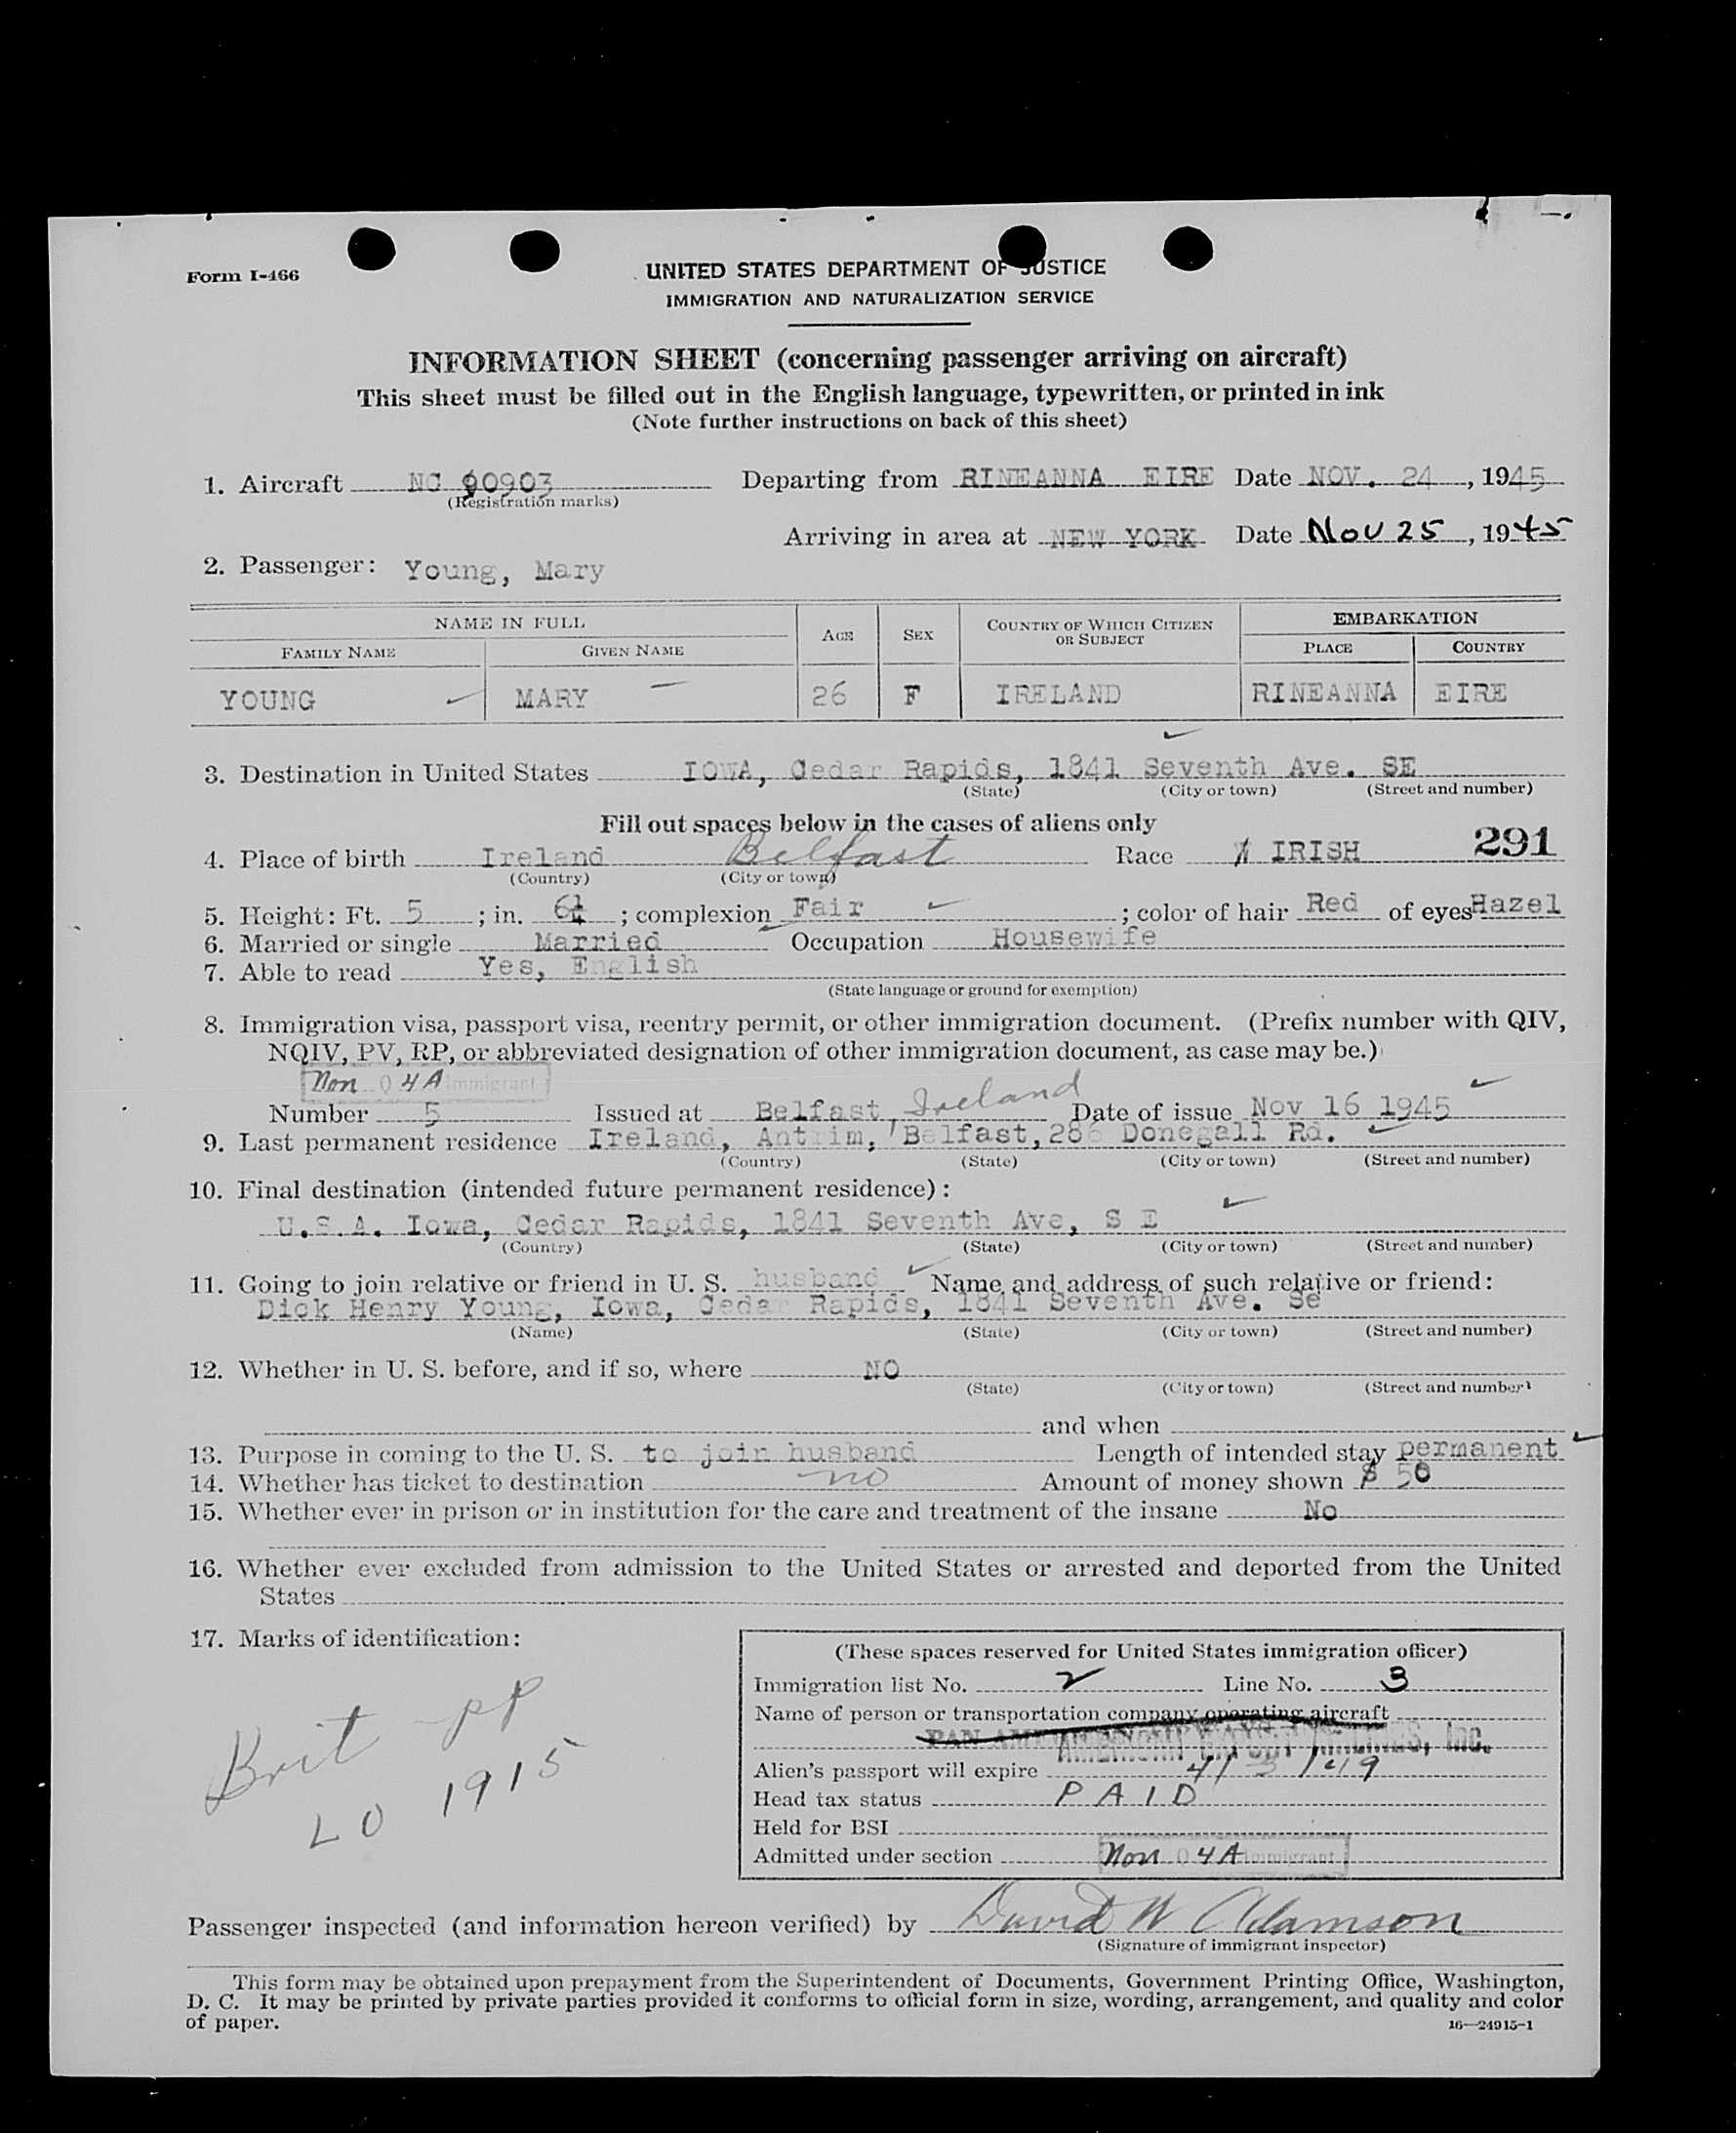 Form I-466
UNITED STATES DEPARTMENT OF JUSTICE
IMMIGRATION AND NATURALIZATION SERVICE
INFORMATION SHEET (concerning passenger arriving on aircraft)
This sheet must be filled out in the English language, typewritten, or printed in ink
(Note further instructions on back of this sheet)
1. Aircraft NC 90903 Departing from RINEANNA EIRE Date NOV. 24, 1945
(Registration marks)
Arriving in area at NEW YORK Date NOV 25, 1945
2. Passenger: Young, Mary
NAME IN FULL AGE SEX COUNTRY OF WHICH CITIZEN OR SUBJECT EMBARKATION
FAMILY NAME GIVEN NAME PLACE COUNTRY
YOUNG MARY 26 F IRELAND RINEANNA EIRE
3. Destination in United States IOWA, Cedar Rapids, 1841 Seventh Ave. SE
(State) (City or town) (Street and number)
Fill out spaces below in the cases of aliens only
4. Place of birth Ireland Belfast Race IRISH 291
(Country) (City or town)
5. Height: Ft. 5 ; in. 6¼ ; complexion Fair ; color of hair Red of eyes Hazel
6. Married or single Married Occupation Housewife
7. Able to read Yes, English
(State language or ground for exemption)
8. Immigration visa, passport visa, reentry permit, or other immigration document. (Prefix number with QIV,
NQIV, PV, RP, or abbreviated designation of other immigration document, as case may be.)
Non Q 4A Immigrant
Number 5 Issued at Belfast, Ireland Date of issue Nov 16 1945
9. Last permanent residence Ireland, Antrim, Belfast, 286 Donegall Rd.
(Country) (State) (City or town) (Street and number)
10. Final destination (intended future permanent residence):
U.S.A. Iowa, Cedar Rapids, 1841 Seventh Ave, S E
(Country) (State) (City or town) (Street and number)
11. Going to join relative or friend in U. S. husband Name and address of such relative or friend:
Dick Henry Young, Iowa, Cedar Rapids, 1841 Seventh Ave. Se
(Name) (State) (City or town) (Street and number)
12. Whether in U. S. before, and if so, where NO
(State) (City or town) (Street and number)
and when
13. Purpose in coming to the U. S. to join husband Length of intended stay permanent
14. Whether has ticket to destination no Amount of money shown $ 50
15. Whether ever in prison or in institution for the care and treatment of the insane No
16. Whether ever excluded from admission to the United States or arrested and deported from the United
States
17. Marks of identification:
Brit pp
LO 1915
(These spaces reserved for United States immigration officer)
Immigration list No. 2 Line No. 3
Name of person or transportation company operating aircraft
AMERICAN EXPORT AIRLINES, Inc.
Alien's passport will expire 4/3/49
Head tax status PAID
Held for BSI
Admitted under section Non Q 4A Immigrant
Passenger inspected (and information hereon verified) by David W Adamson
(Signature of immigrant inspector)
This form may be obtained upon prepayment from the Superintendent of Documents, Government Printing Office, Washington,
D. C. It may be printed by private parties provided it conforms to official form in size, wording, arrangement, and quality and color
of paper.
16—24915-1